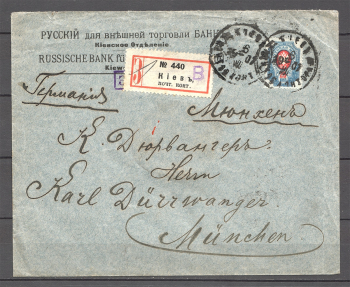 РУССКІЙ для внѣшней торговли БАНК
Кіевское Отдѣленіе
RUSSISCHE BANK
№ 440
Кіевъ
почт. конт.
Германія
Мюнхенъ
К. Дюрвангеръ
Herrn
Karl Dürrwanger
München